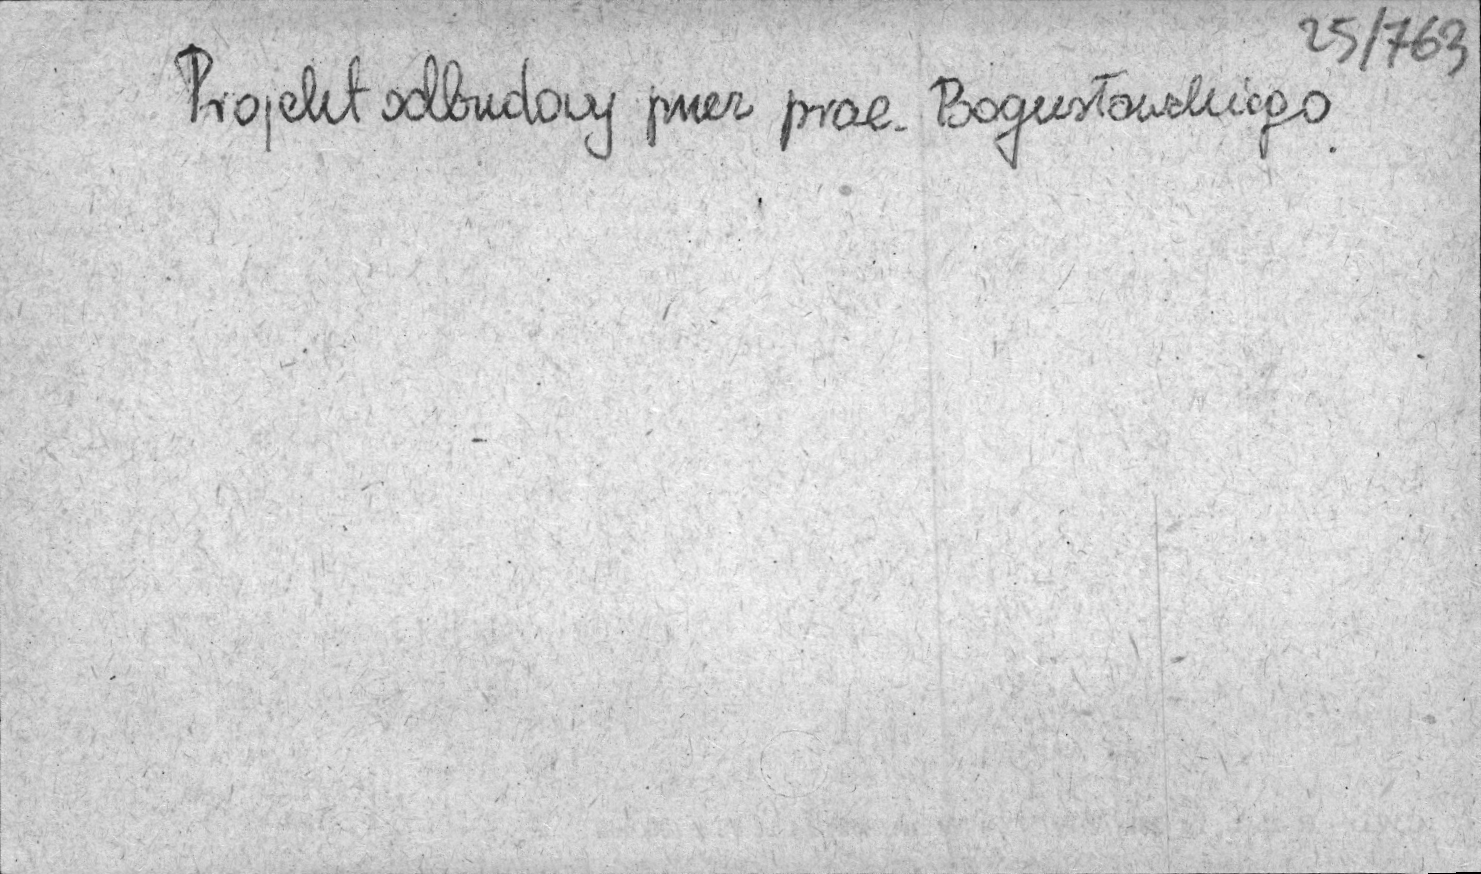 25/763
Projekt odbudowy przez prac. Bogusławskiego.